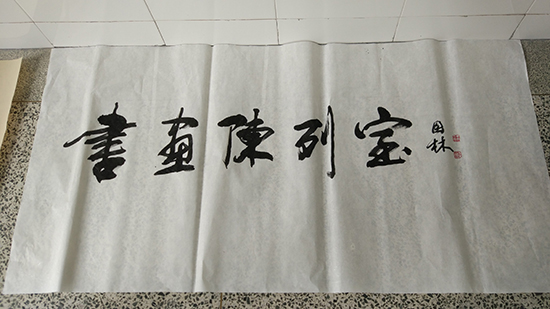 書畫陳列室
林